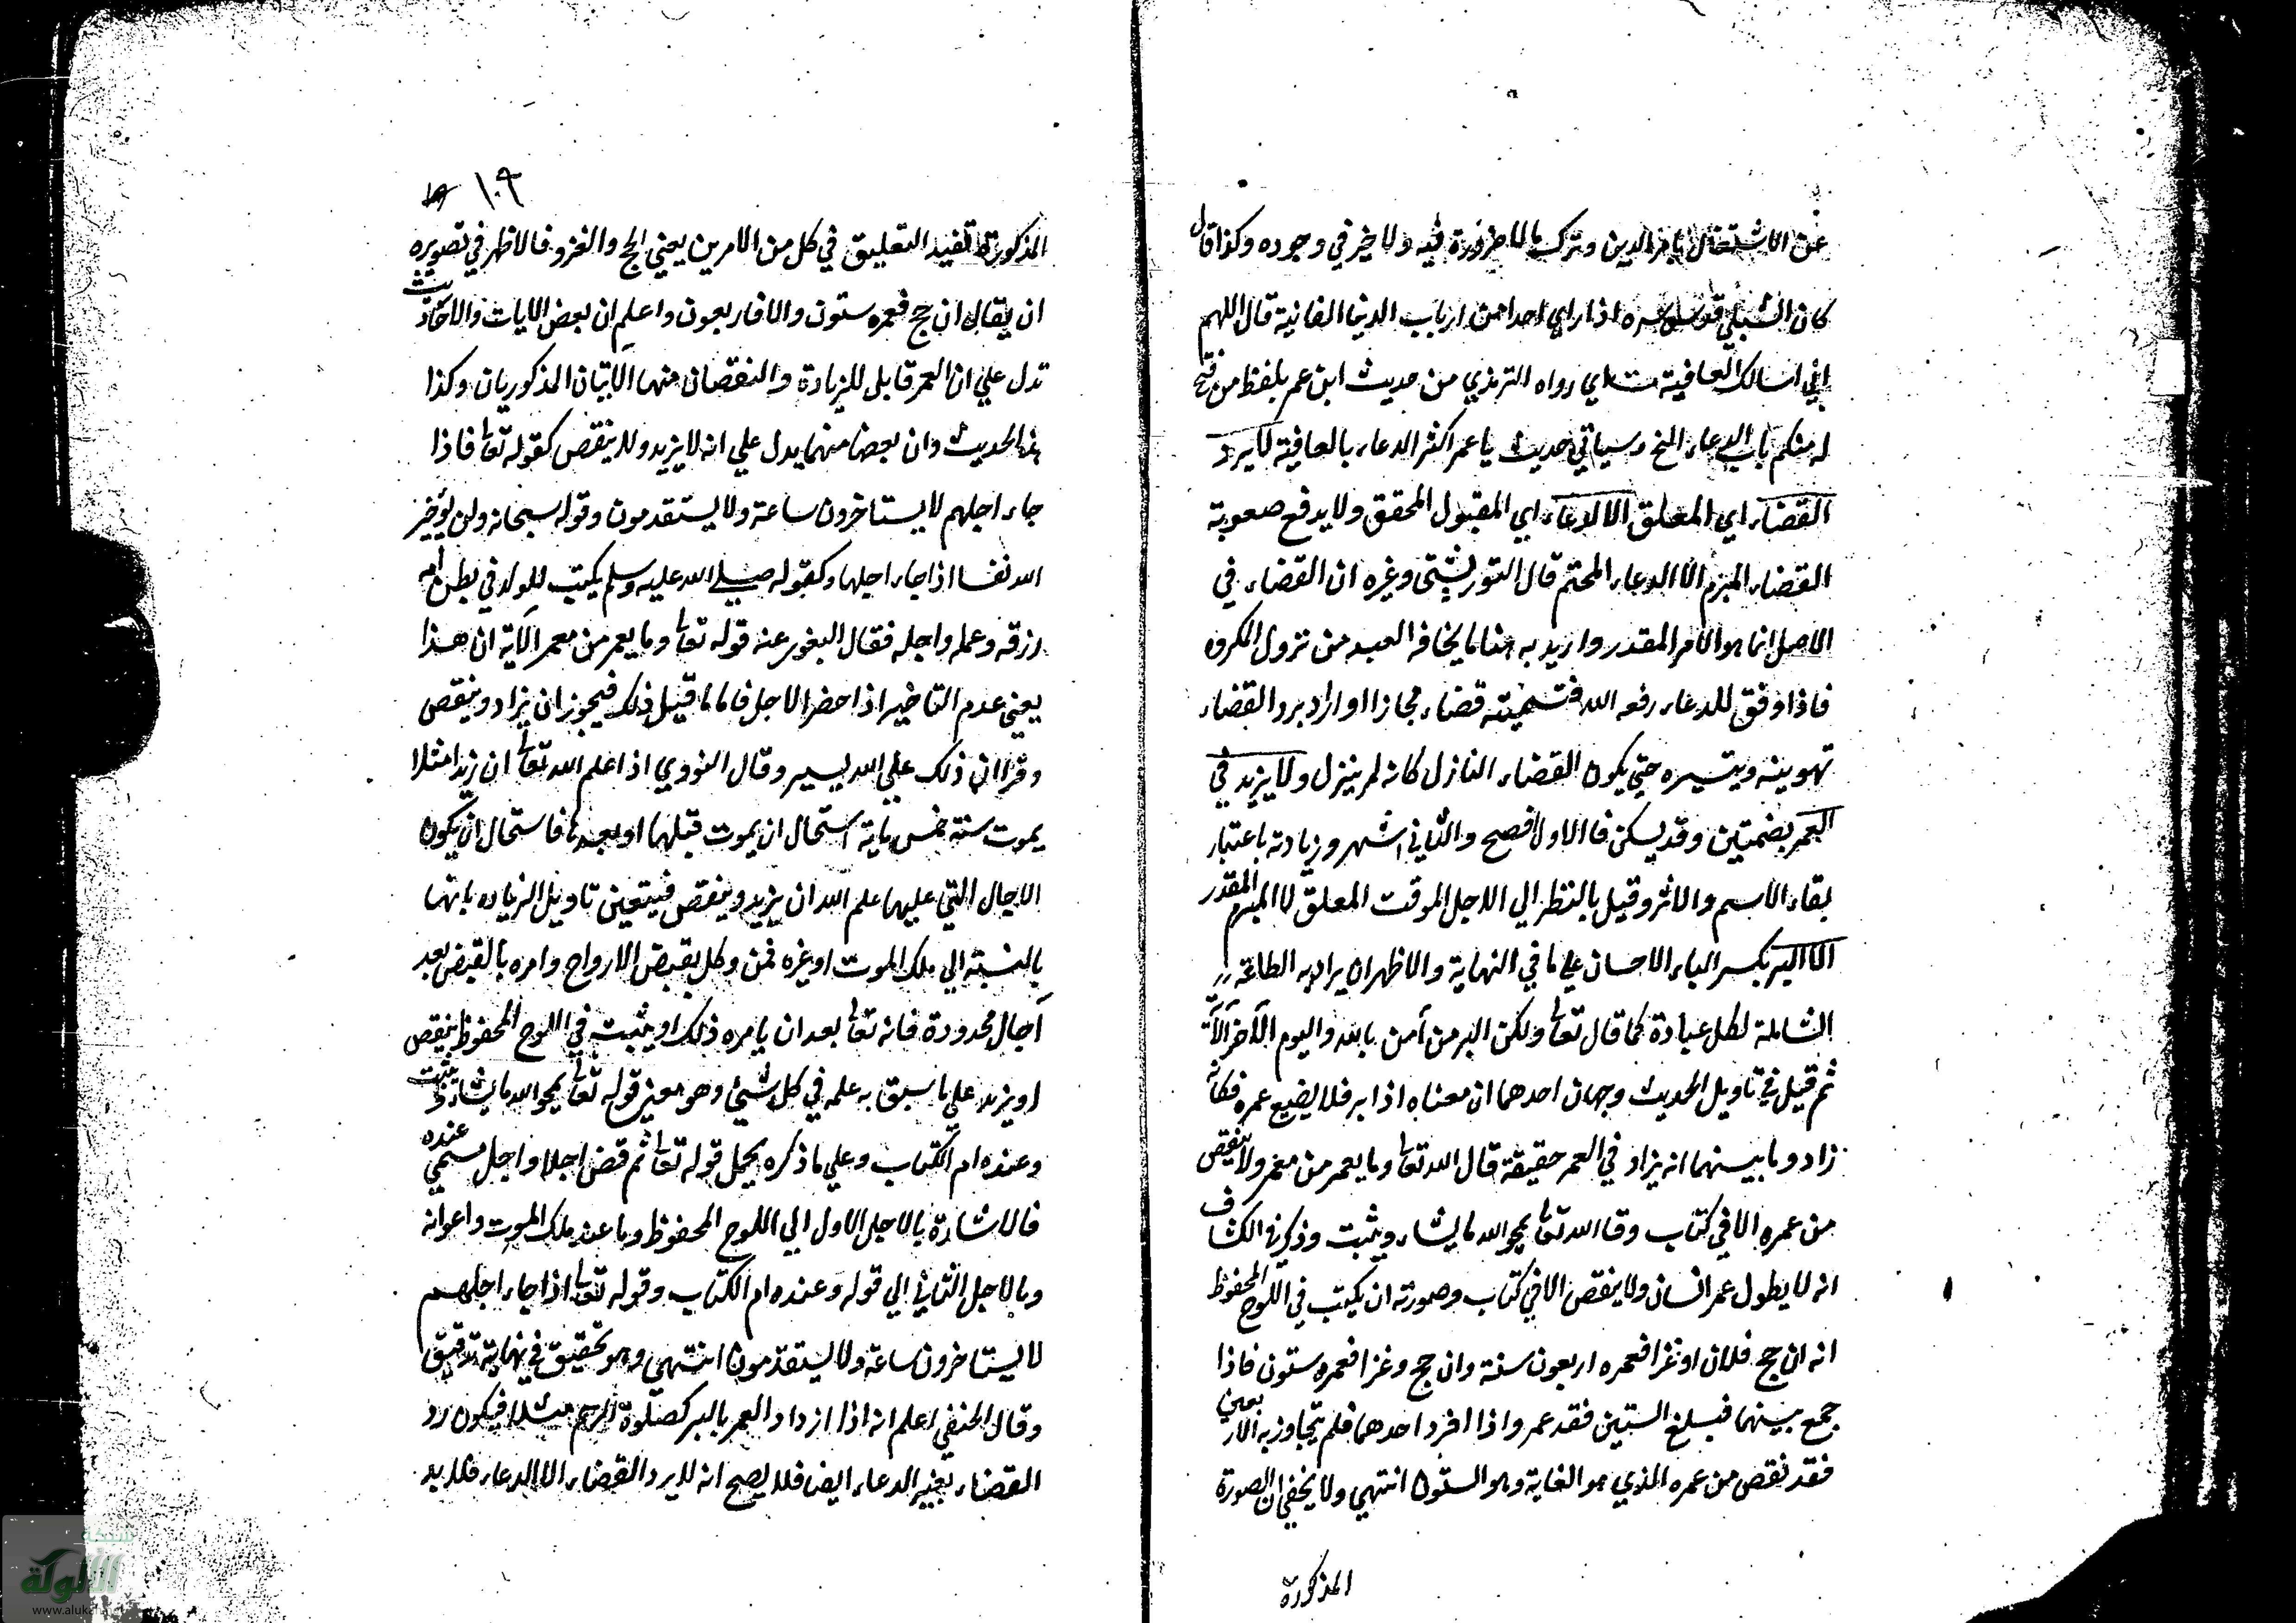 عن الاشتغال بامر الدين وترك ما لا ضرورة فيه ولا خير في وجوده وكذا قال
كان الشبلي قدس سره اذا راي احدا من ارباب الدنيا الفانية قال اللهم
اني اسالك العافية ت اي رواه الترمذي من حديث ابن عمر بلفظ من فتح
له منكم باب الدعاء الخ وسياتي حديث يا عم اكثر الدعاء بالعافية لا يرد
القضاء اي المعلق الا الدعاء اي المقبول المحقق ولا يدفع صعوبة
القضاء المبرم الا الدعاء المحتم قال التوربشتي وغيره ان القضاء في
الاصل انما هو الامر المقدر واريد به هنا ما يخافه العبد من نزول المكروه
فاذا وفق للدعاء رفعه الله فتسميته قضاء مجازا او اراد برد القضاء
تهوينه وتيسيره حتي يكون القضاء النازل كانه لم ينزل ولا يزيد في
العمر بضمتين وقد يسكن فالاول افصح والثاني اشهر وزيادته باعتبار
بقاء الاسم والاثر وقيل بالنظر الي الاجل الموقت المعلق لا المبرم المقدر
الا البر بكسر الباء الاحسان علي ما في النهاية والاظهر ان يراد به الطاعة
الشاملة لكل عبادة كما قال تعا ولكن البر من آمن بالله واليوم الآخر الآية
ثم قيل في تاويل الحديث وجهان احدهما ان معناه اذا بر فلا يضيع عمره فكانه
زاد وما بينهما انه يزاد في العمر حقيقة قال الله تعا وما يعمر من معمر ولا ينقص
من عمره الا في كتاب وقا الله تعا يمحو الله ما يشاء ويثبت وذكر في الكشاف
انه لا يطول عمر انسان ولا ينقص الا في كتاب وصورته ان يكتب في اللوح المحفوظ
انه ان حج فلان او غزا فعمره اربعون سنة وان حج وغزا فعمره ستون فاذا
جمع بينهما فبلغ الستين فقد عمر واذا افرد احدهما فلم يتجاوز به الاربعين
فقد نقص من عمره الذي هو الغاية وهو الستون انتهي ولا يخفي ان الصورة
المذكورة
١٠٩
المذكورة تفيد التعليق في كل من الامرين يعني الحج والغزو فالاظهر في تصويره
ان يقال ان حج فعمره ستون والا فاربعون واعلم ان بعض الايات والاحاديث
تدل علي ان العمر قابل للزيادة والنقصان منها الايتان المذكورتان وكذا
هذا الحديث وان بعضا منهما يدل علي انه لا يزيد ولا ينقص كقوله تعا فاذا
جاء اجلهم لا يستاخرون ساعة ولا يستقدمون وقوله سبحانه ولن يؤخر
الله نفسا اذا جاء اجلها وكقوله صلي الله عليه وسلم يكتب للولد في بطن امه
رزقه وعمله واجله فقال البغوي عند قوله تعا وما يعمر من معمر الآية ان هذا
يعني عدم التاخير اذا حضر الاجل فاما ما قبل ذلك فيجوز ان يزاد وينقص
وقرا ان ذلك علي الله يسير وقال النووي اذا علم الله تعا ان زيدا مثلا
يموت سنة خمس ماية استحال ان يموت قبلها او بعدها فاستحال ان يكون
الاجال التي عليها علم الله ان يزيد وينقص فيتعين تاويل الزياده بانها
بالنسبة الي ملك الموت او غيره فمن وكل بقبض الارواح وامره بالقبض بعد
آجال محدودة فانه تعا بعد ان يامره ذلك او يثبت في اللوح المحفوظ ينقص
او يزيد علي ما سبق به علمه في كل شيئ وهو معني قوله تعا يمحو الله ما يشاء ويثبت
وعنده ام الكتاب وعلي ما ذكره يحمل قوله تعا ثم قضي اجلا واجل مسمي عنده
فالاشارة بالاجل الاول الي اللوح المحفوظ وما عند ملك الموت واعوانه
وبالاجل الثاني الي قوله وعنده ام الكتاب وقوله تعا اذا جاء اجلهم
لا يستاخرون ساعة ولا يستقدمون انتهي وهو تحقيق في نهاية تدقيق
وقال الحنفي اعلم انه اذا ازداد العمر بالبر كصلوة الرحم مثلا فيكون رد
القضاء بغير الدعاء ايضا فلا يصح انه لا يرد القضاء الا الدعاء فلا بد
شبكة
الألوكة
www.alukah.net